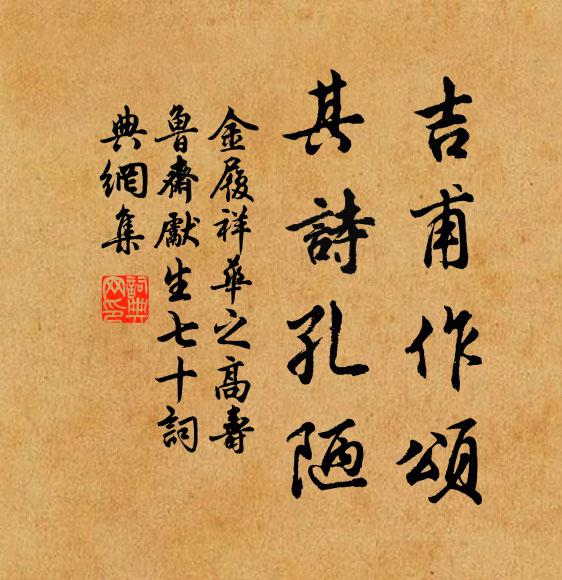 吉甫作頌
其詩孔陋
金履祥華之高壽
魯齋獻生七十詞
典網集
詞典
网印